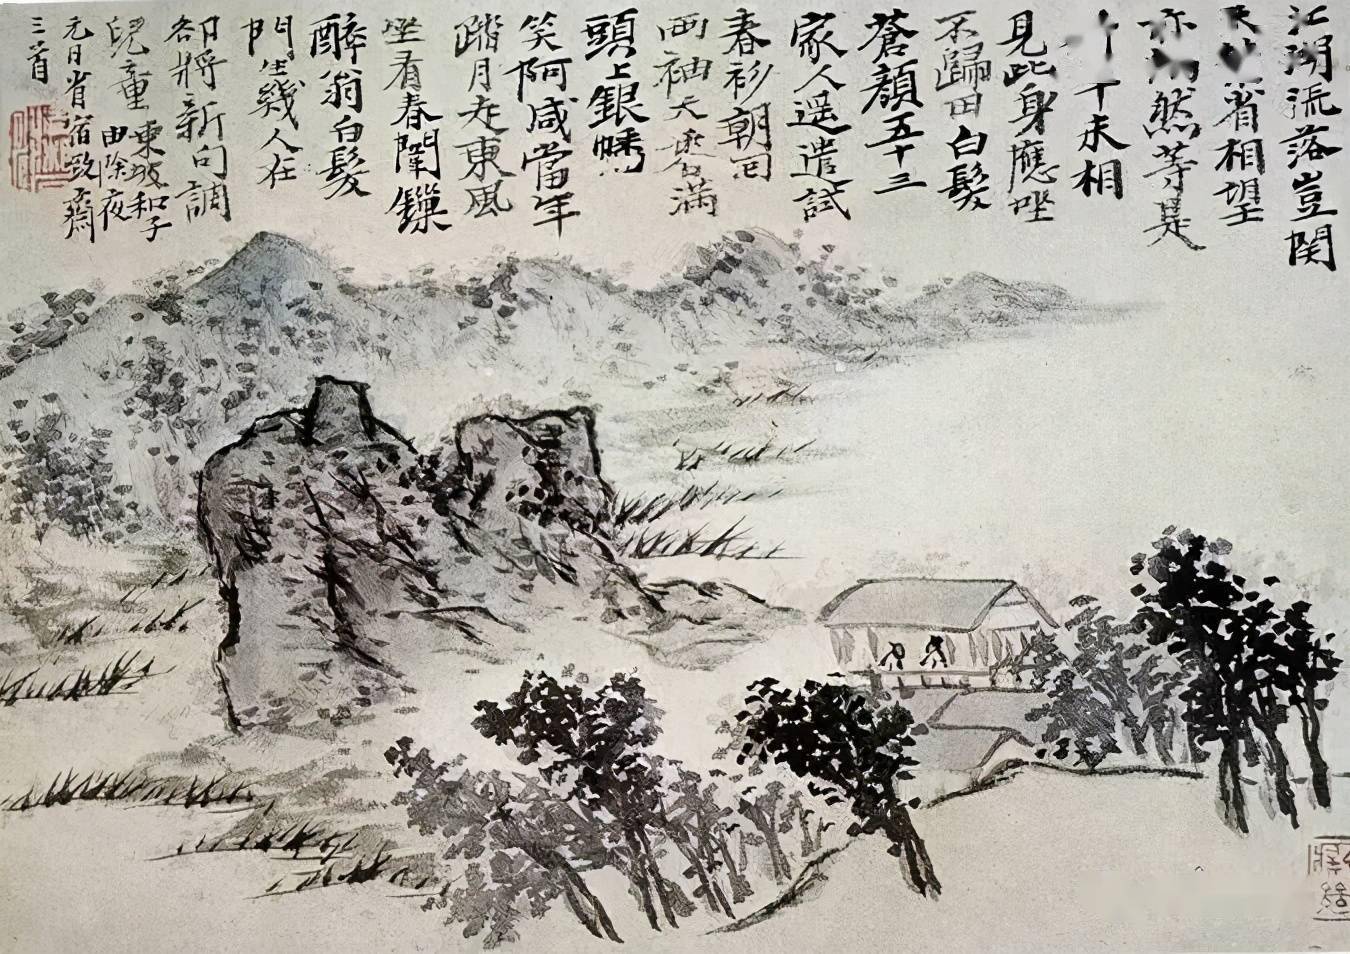 江湖流落豈関
省相望
亦然等是
未相
見此身應坐
不歸田白髮
蒼顔五十三
家人遥遣試
春衫朝回
兩袖天香滿
頭上銀幡
笑阿咸當年
踏月走東風
坐看春闈鏁
醉翁白髮
門生幾人在
却將新句調
兒童東坡和子
由除夜
元日省宿致齋
三首